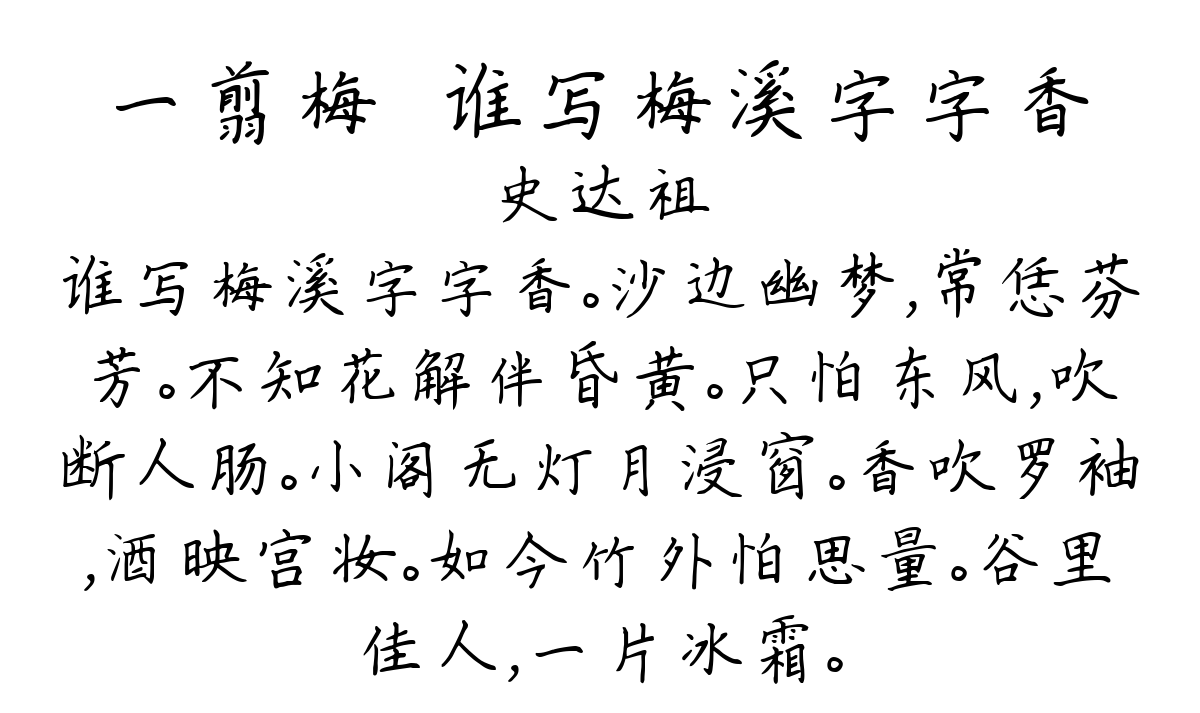 一翦梅 谁写梅溪字字香
史达祖
谁写梅溪字字香。沙边幽梦,常恁芬
芳。不知花解伴昏黄。只怕东风,吹
断人肠。小阁无灯月浸窗。香吹罗袖
,酒映宫妆。如今竹外怕思量。谷里
佳人,一片冰霜。